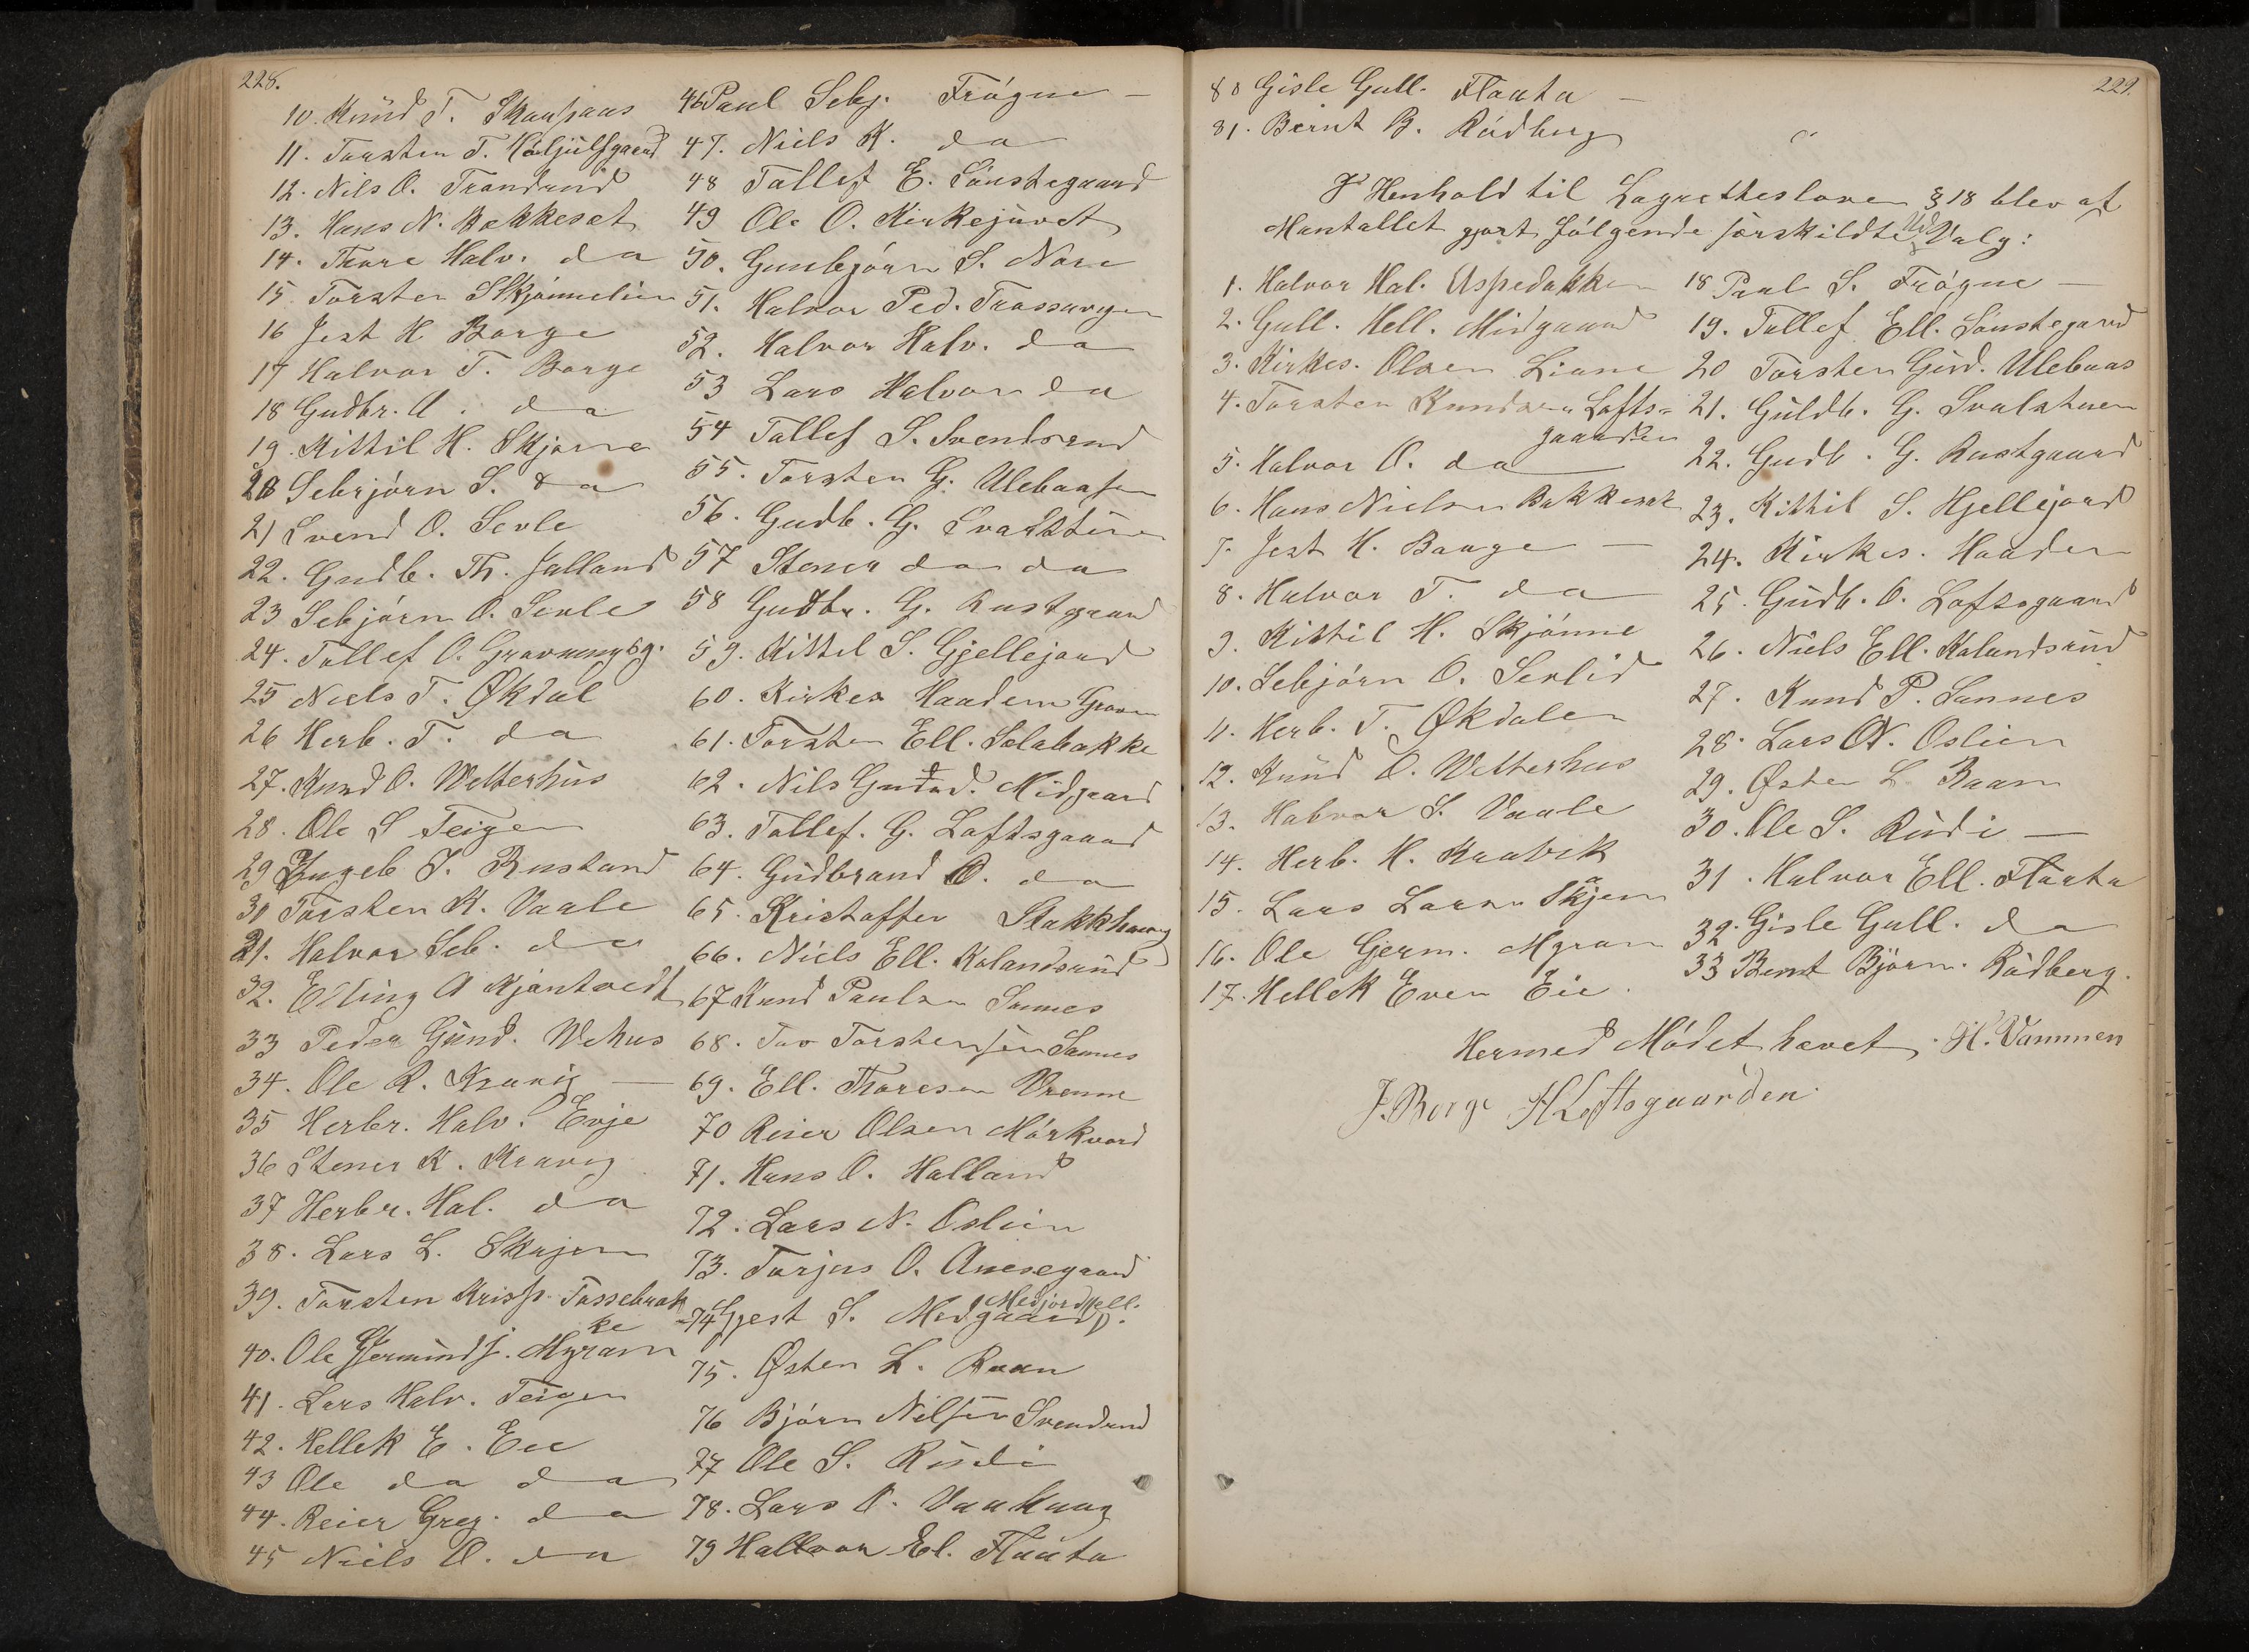 228.
10. Knud T. Skaupaas
11. Torsten T. Haljulsgaard
12. Nils O. Trondrud
13. Hans N. Bakkeset
14. Thore Halv. da
15 Torsten Skjønnelien
16 Jest H Borge
17 Halvor T. Borge
18 Gudbr. A. da
19. Kittil H. Skjønne
20 Sebjørn S. da
21 Svend O. Sevle
22. Gudb. Th. Jalland
23 Sebjørn O. Sevle
24. Tollef O. Gravningsg.
25 Niels T. Økdal
26 Herb. T. da
27. Knud O. Wetterhus
28. Ole S Teigen
29 Ingeb J. Rustand
30 Torsten K. Vaale
31. Halvor Seb. da
32. Elling A Kjøntvedt
33 Peder Gund. Vehus
34. Ole R. Kravig —
35 Herbr. Halv. Evje
36 Stener K. Kravig
37 Herbr. Hal. da
38. Lars L. Skajem
39. Torsten Krisp. Tossebrak
ke
40. Ole Germundf. Myran
41. Lars Halv. Teigen
42. Hellek E. Eie
43 Ole da da
44. Reier Greg. da
45 Niels O. da
46 Paul Sebj. Frøgne —
47. Niels K. da
48 Tollef E. Sønstegaard
49 Ole O. Kirkejuvet
50. Gunbjørn S. Nore
51. Halvor Ped. Trossavigen
52. Halvor Halv. da
53 Lars Halvor da
54 Tollef S. Svendsrud
55. Torsten G. Ulebaasen
56. Gudb. G. Svartstuen
57 Stener da da
58 Gudbr. G. Rustgaard
59. Kittel S. Gjellejord
60. Kirkes Haadem Graven
61. Torsten Ell. Solabakke
62. Nils Gudbr. Midgaard
63. Tollef. G. Loftsgaard
64. Gudbrand O. da
65. Kristoffer Stakkhaug
66. Niels Ell. Kolandsrud
67 Knud Paulsen Sannes
68. Tov Torstensen Sannes
69. Ell. Thoresen Vrenne
70 Reier Olsen Mørkvord
71. Hans O. Halland
72. Lars N. Oslien
73. Torjus O. Aasegaard
Medjordhell.
74 Gjest S. Medgaard
75. Østen L. Raan
76 Bjørn Nilsen Svendrud
77 Ole S. Rudi
78. Lars O. Vaahaug
79 Hallvor El. Flaata
229.
80 Gisle Gull. Flaata —
81. Bernt B. Rødberg
I Henhold til Lagretteslovens § 18 blev af
Mantallet gjort følgende særskildte Ud Valg:
1. Halvor Hal. Uspedokken
2. Gull. Hell. Midgaard
3. Kirkes. Olsen Liane
4. Torsten Knudsen Lofts-
gaarden
5. Halvor O. da
6. Hans Nielsen Bakkeset
7. Jest H. Baage —
8. Halvor T. da
9. Kittil H. Skjønne
10. Sebjørn O. Sevlid
11. Herb. T. Økdalen
12. Knud O. Wetterhus
13. Halvor S. Vaale
14. Herb. H. Kaavik
15. Lars Larsen Skjem
16. Ole Germ. Myran
17. Hellek Even Eie.
18 Paul S. Frøgne —
19. Tollef Ell. Sønstegard
20 Torsten Gud. Ulebaas
21. Guldb. G. Svalstuen
22. Gudb. G. Rustgaard
23. Kittil S. Hjellejord
24. Kirkes. Haadem
25. Gudb. O. Loftsgaard
26. Niels Ell. Kolandsrud
27. Knud P. Sannes
28. Lars N. Oslien
29. Østen L. Raan
30. Ole S. Rudi —
31. Halvor Ell. Flaata
32. Gisle Gull. da
33 Bernt Bjørn. Rødberg.
Hermed Mødet hævet. H. Vammen
J. Borge H Loftsgaarden